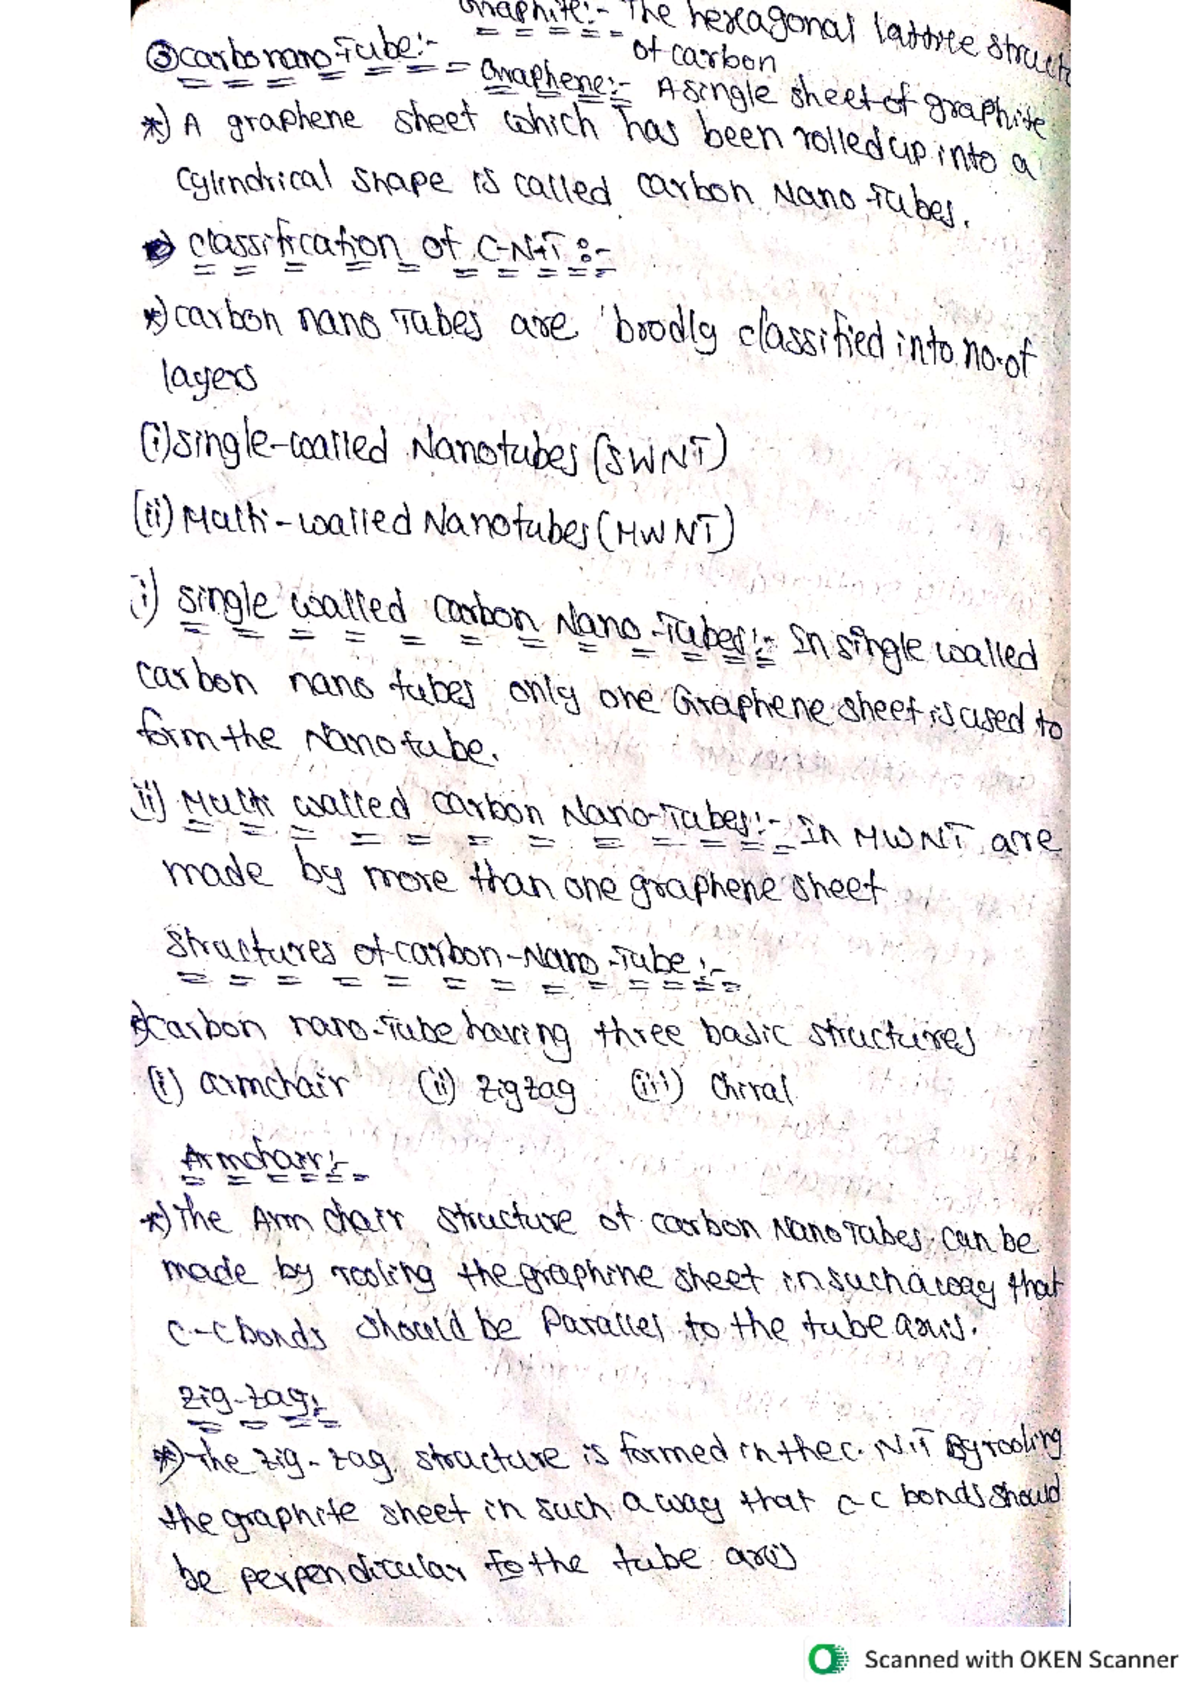 Graphite:- The hexagonal lattice struct
of carbon
③ carbo nano-Tube:-
Graphene:- A single sheet of graphite
*) A graphene sheet which has been rolled up into a
cylindrical shape is called carbon Nano-Tubes.
classification of C-N-T :-
*) carbon nano Tubes are brodly classified into no.of
layers
(i) single-walled Nanotubes (SWNT)
(ii) Multi-walled Nanotubes (MWNT)
i) single walled carbon Nano-Tubes:- In single walled
carbon nano tubes only one Graphene sheet is used to
form the Nano tube.
ii) Multi walled carbon Nano-Tubes:- In MWNT are
made by more than one graphene sheet
Structures of carbon-Nano-Tube:-
*) carbon nano-Tube having three basic structures
(i) armchair (ii) zigzag (iii) Chiral
Armchair:-
*) The Arm chair structure of carbon Nano Tubes can be
made by rooling the graphine sheet in such a way that
c-c bonds should be Parallel to the tube axis.
Zig-zag:-
*) The zig-zag structure is formed in the c.N.T By rooling
the graphite sheet in such a way that c-c bonds should
be perpendicular to the tube axis
Scanned with OKEN Scanner